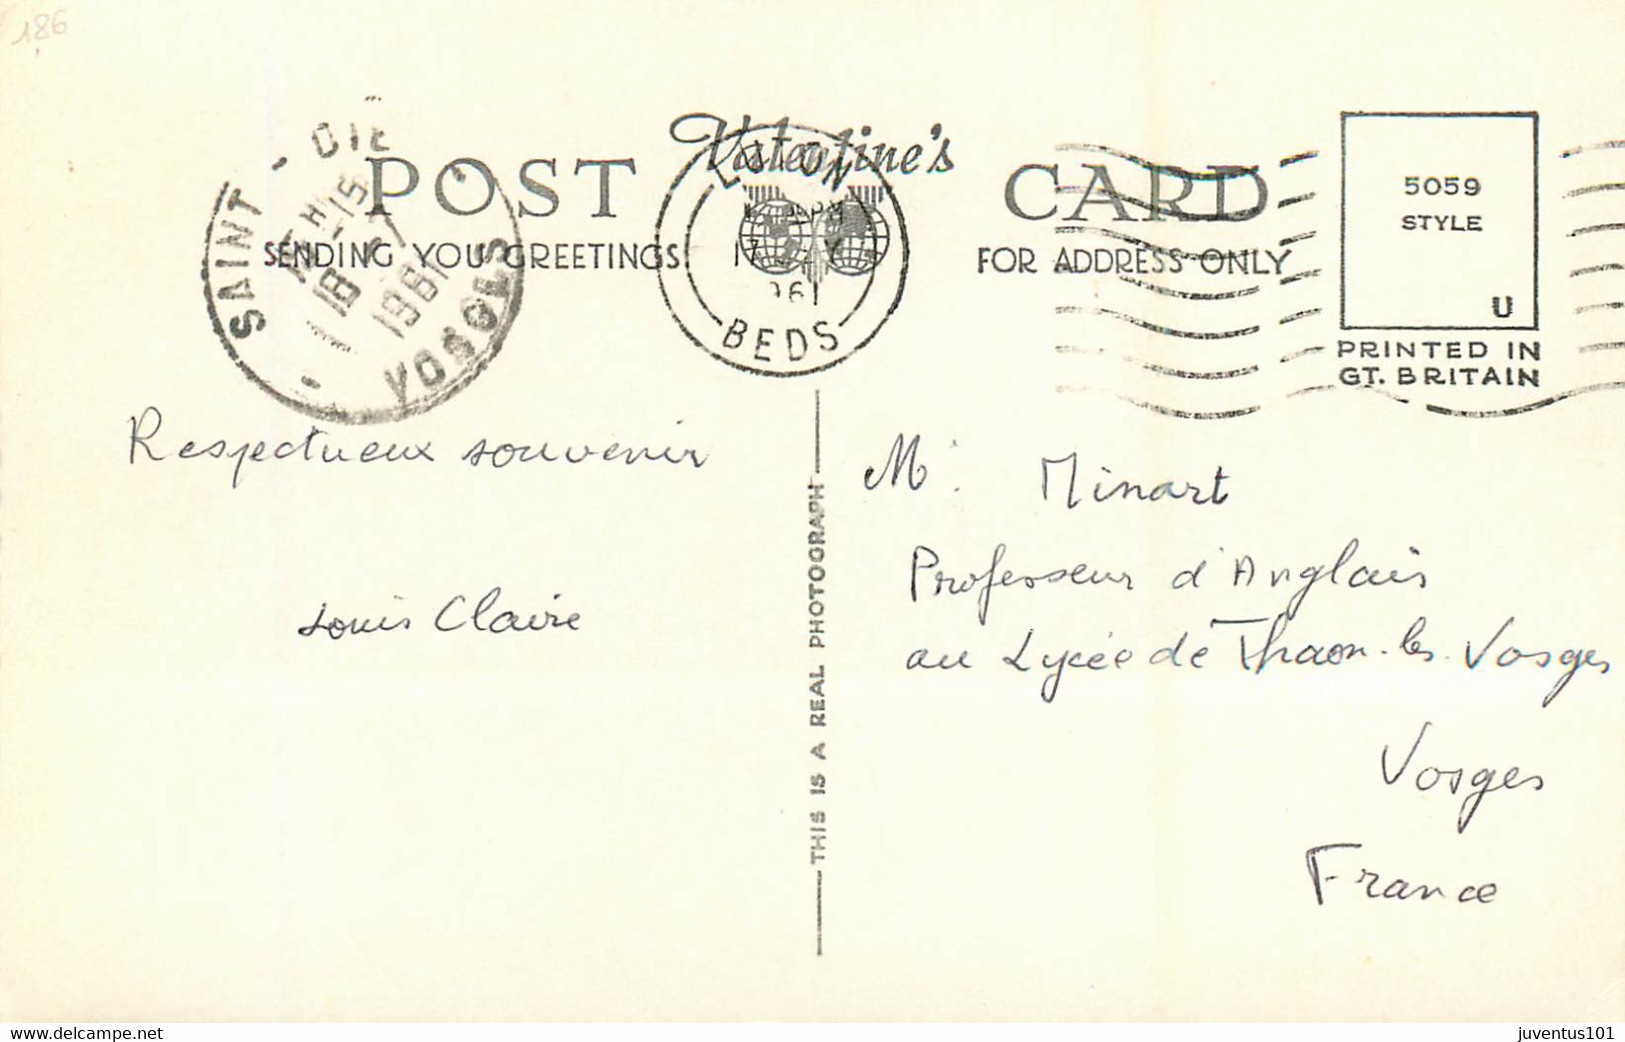 186
Valentine's
POST CARD
SENDING YOU GREETINGS
FOR ADDRESS ONLY
SAINT - DIE
15H-15
18 - 7
1961
VOSGES
LUTON
17 JLY
1961
BEDS
5059
STYLE
U
PRINTED IN
GT. BRITAIN
Respectueux souvenir
Louis Claire
THIS IS A REAL PHOTOGRAPH
Mr. Minart
Professeur d'Anglais
au Lycée de Thaon-les-Vosges
Vosges
France
delcampe.net
juventus101